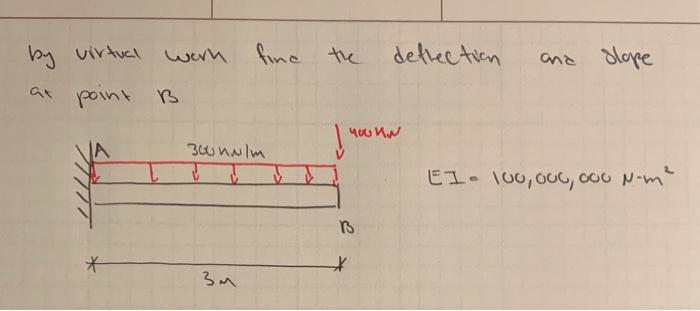 by virtual work find the deflection and slope
at point B
400 kN
A 300 kN/m
EI = 100,000,000 N-m²
B
3m